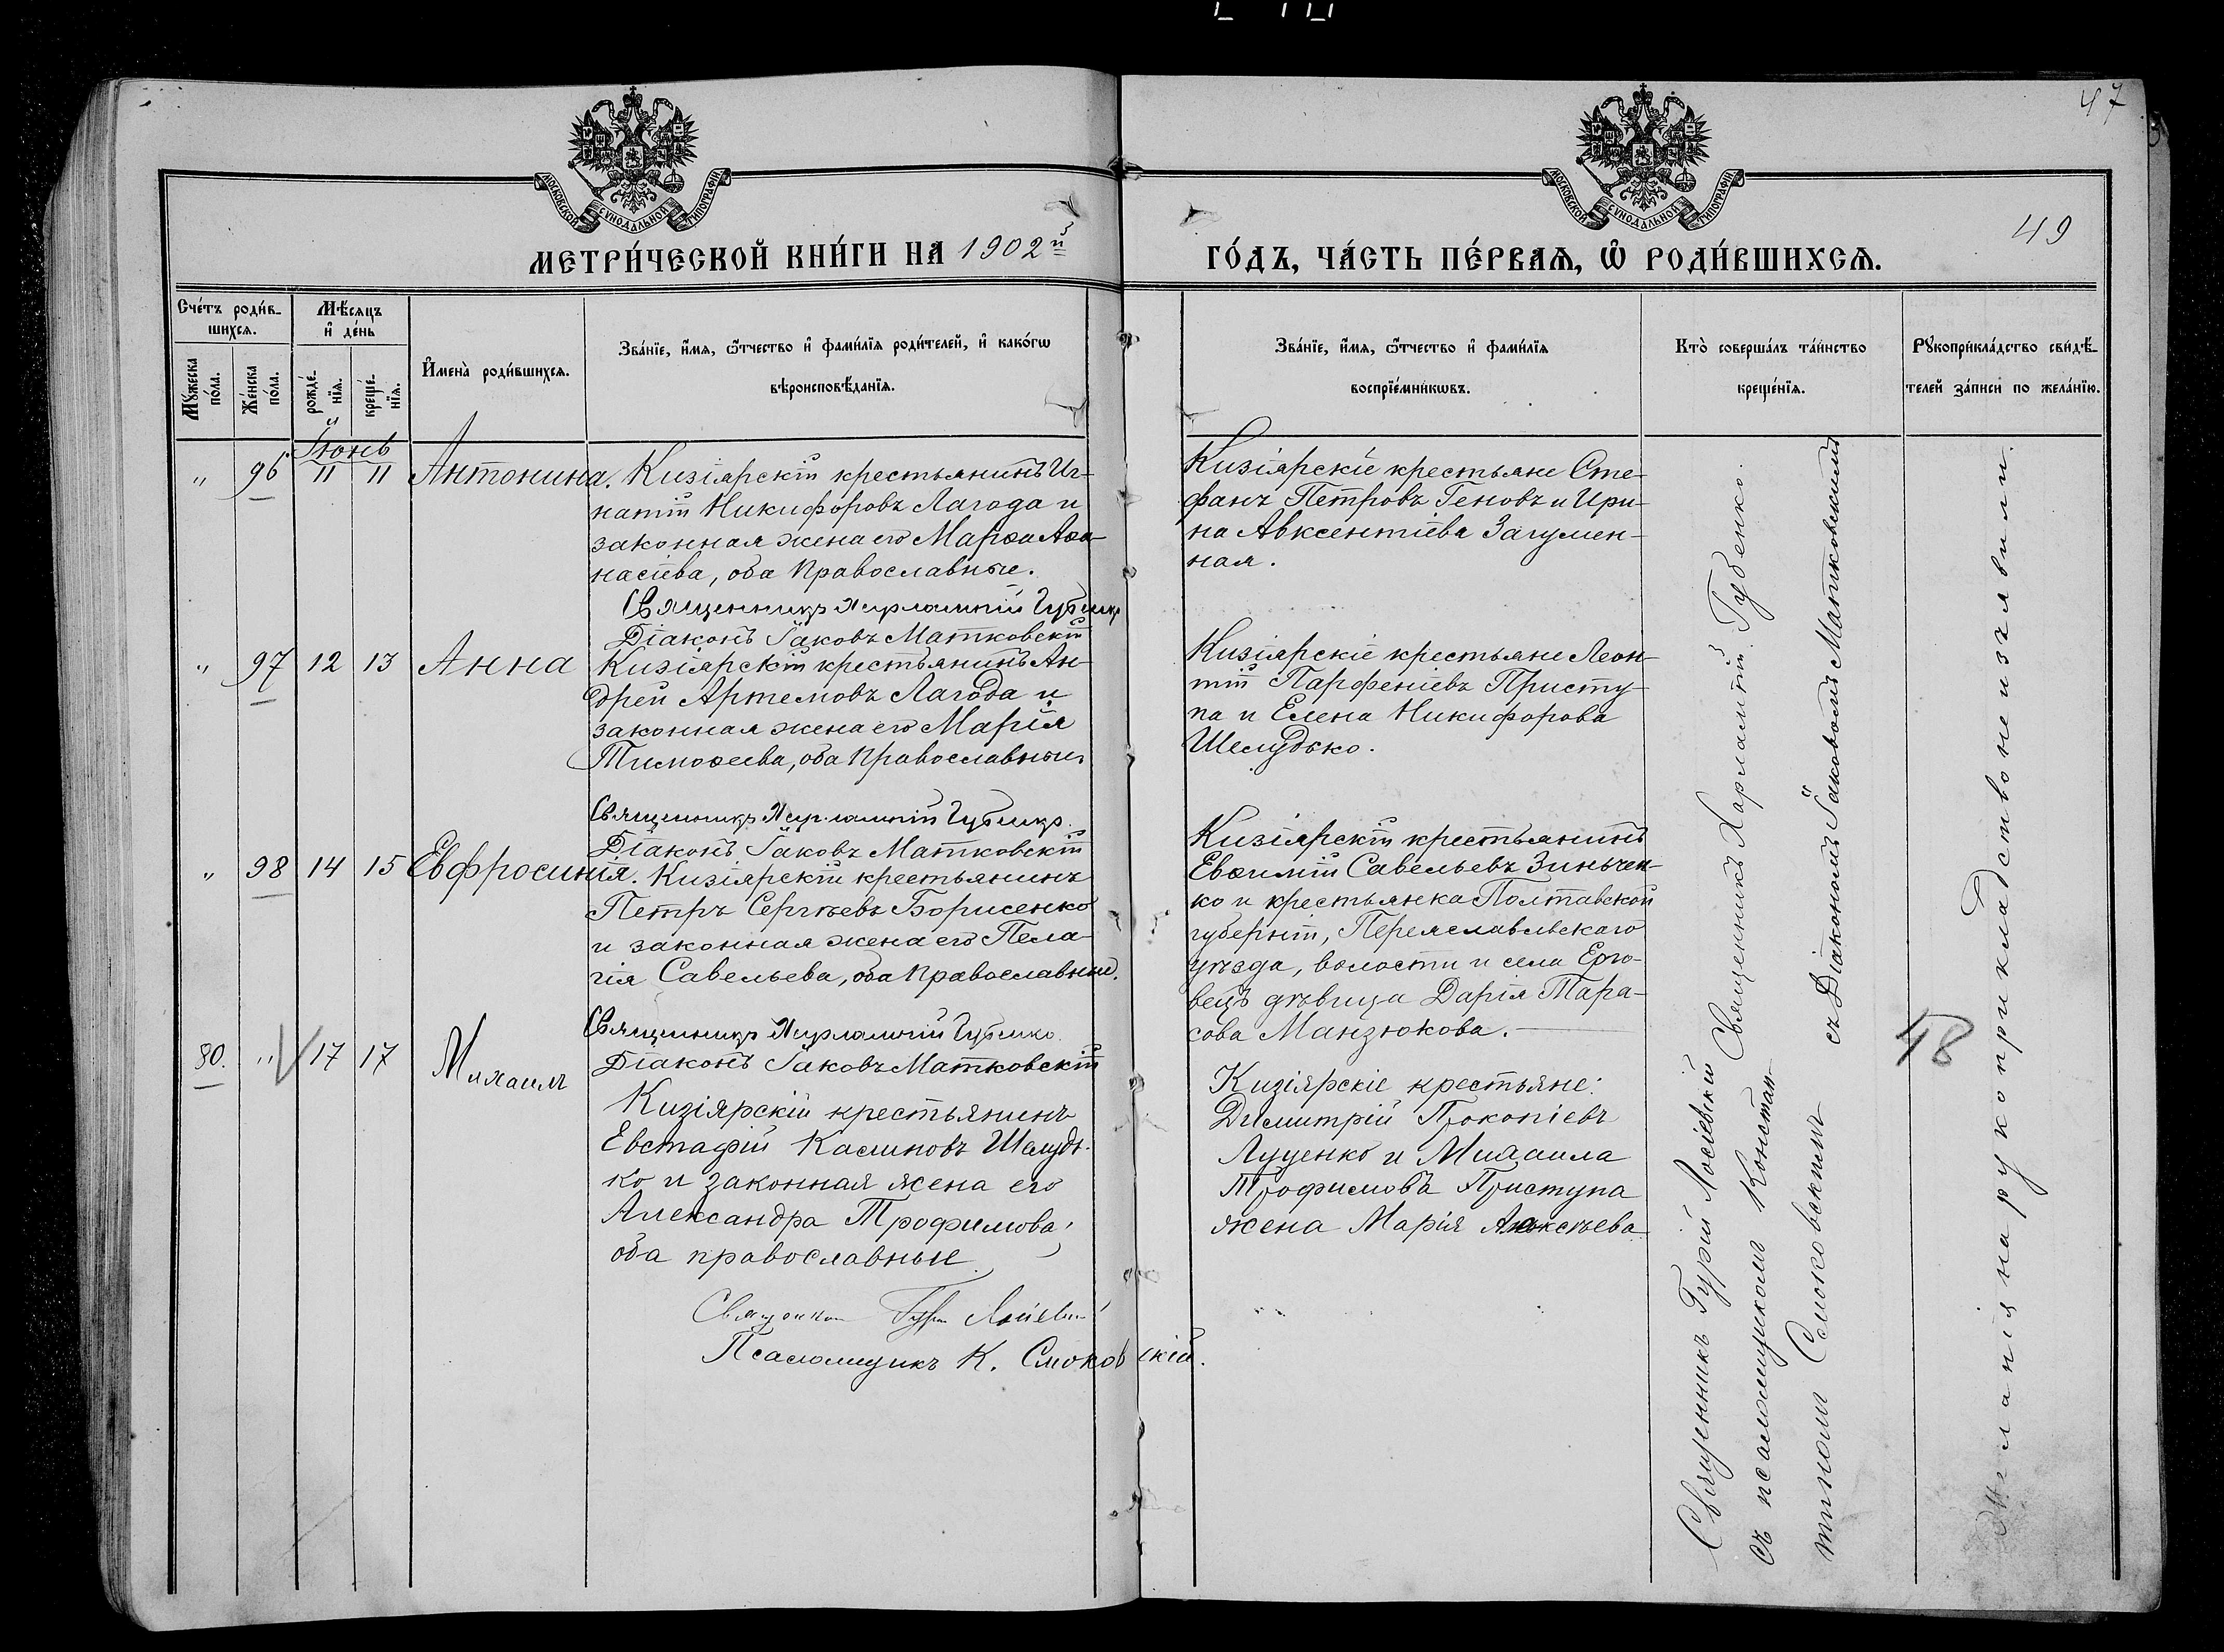 47
МОСКОВСКОЙ СѴНОДАЛЬНОЙ ТИПОГРАФІИ
МОСКОВСКОЙ СѴНОДАЛЬНОЙ ТИПОГРАФІИ
49
МЕТРИ́ЧЕСКОЙ КНИ́ГИ НА 1902й
ГО́ДЪ, ЧА́СТЬ ПЕ́РВАѦ, Ѡ҆ РОДИ́ВШИХСѦ.
Сче́тъ роди́в-
шихсѧ.
Мꙋ́жеска по́ла.
Же́нска по́ла.
Мѣ́сѧцъ
и҆ де́нь
рожде́-
нїѧ.
креще́-
нїѧ.
И҆мена̀ роди́вшихсѧ.
Зва́нїе, и҆́мѧ, ѻ҆́тчество и҆ фами́лїѧ роди́телей, и҆ како́гѡ
вѣроисповѣ́данїѧ.
Зва́нїе, и҆́мѧ, ѻ҆́тчество и҆ фами́лїѧ
воспрїе́мникѡвъ.
Кто̀ соверша́лъ та́инство
креще́нїѧ.
Рꙋкоприкла́дство свидѣ́-
телей за́писи по жела́нїю.
Іюнь
" 96 11 11 Антонина. Кизіярскій крестьянинъ Иг-
натій Никифоровъ Лагода и
законная жена его Марѳа Аѳа-
насіева, оба Православные.
Священникъ Харлампій Губенко
Діаконъ Іаковъ Матковскій
Кизіярскіе крестьяне Сте-
фанъ Петровъ Геновъ и Ири-
на Авксентіева Загумен-
ная.
" 97 12 13 Анна Кизіярскій крестьянинъ Ан-
дрей Артемовъ Лагода и
законная жена его Марія
Тимоѳеева, оба Православные
Священникъ Харлампій Губенко.
Діаконъ Іаковъ Матковскій
Кизіярскіе крестьяне Леон-
тій Парфеніевъ Присту-
па и Елена Никифорова
Шелудько.
" 98 14 15 Евфросинія. Кизіярскій крестьянинъ
Петръ Сергѣевъ Борисенко
и законная жена его Пела-
гія Савельева, оба Православные.
Священникъ Харлампій Губенко.
Діаконъ Іаковъ Матковскій
Кизіярскій крестьянинъ
Евѳимій Савельевъ Зиньчен-
ко и крестьянка Полтавской
губерніи, Переяславльскаго
уѣзда, волости и села Ерко-
вецъ дѣвица Дарія Тара-
сова Манзюкова.
80. " 17 17 Михаилъ
Кизіярскій крестьянинъ
Евстафій Касиновъ Шелудь-
ко и законная жена его
Александра Трофимова,
оба православные
Священникъ Гурій Лосіевскій
Псаломщикъ К. Смоковскій.
Кизіярскіе крестьяне:
Димитрій Прокопіевъ
Луценко и Михаила
Трофимовъ Приступа
жена Марія Алексѣева
Священникъ Харлампій Губенко.
съ Діакономъ Іаковомъ Матковскимъ
Священникъ Гурій Лосіевскій
съ псаломщикомъ Констан-
тиномъ Смоковскимъ
48
Желанія на рукоприкладство не изъявили.